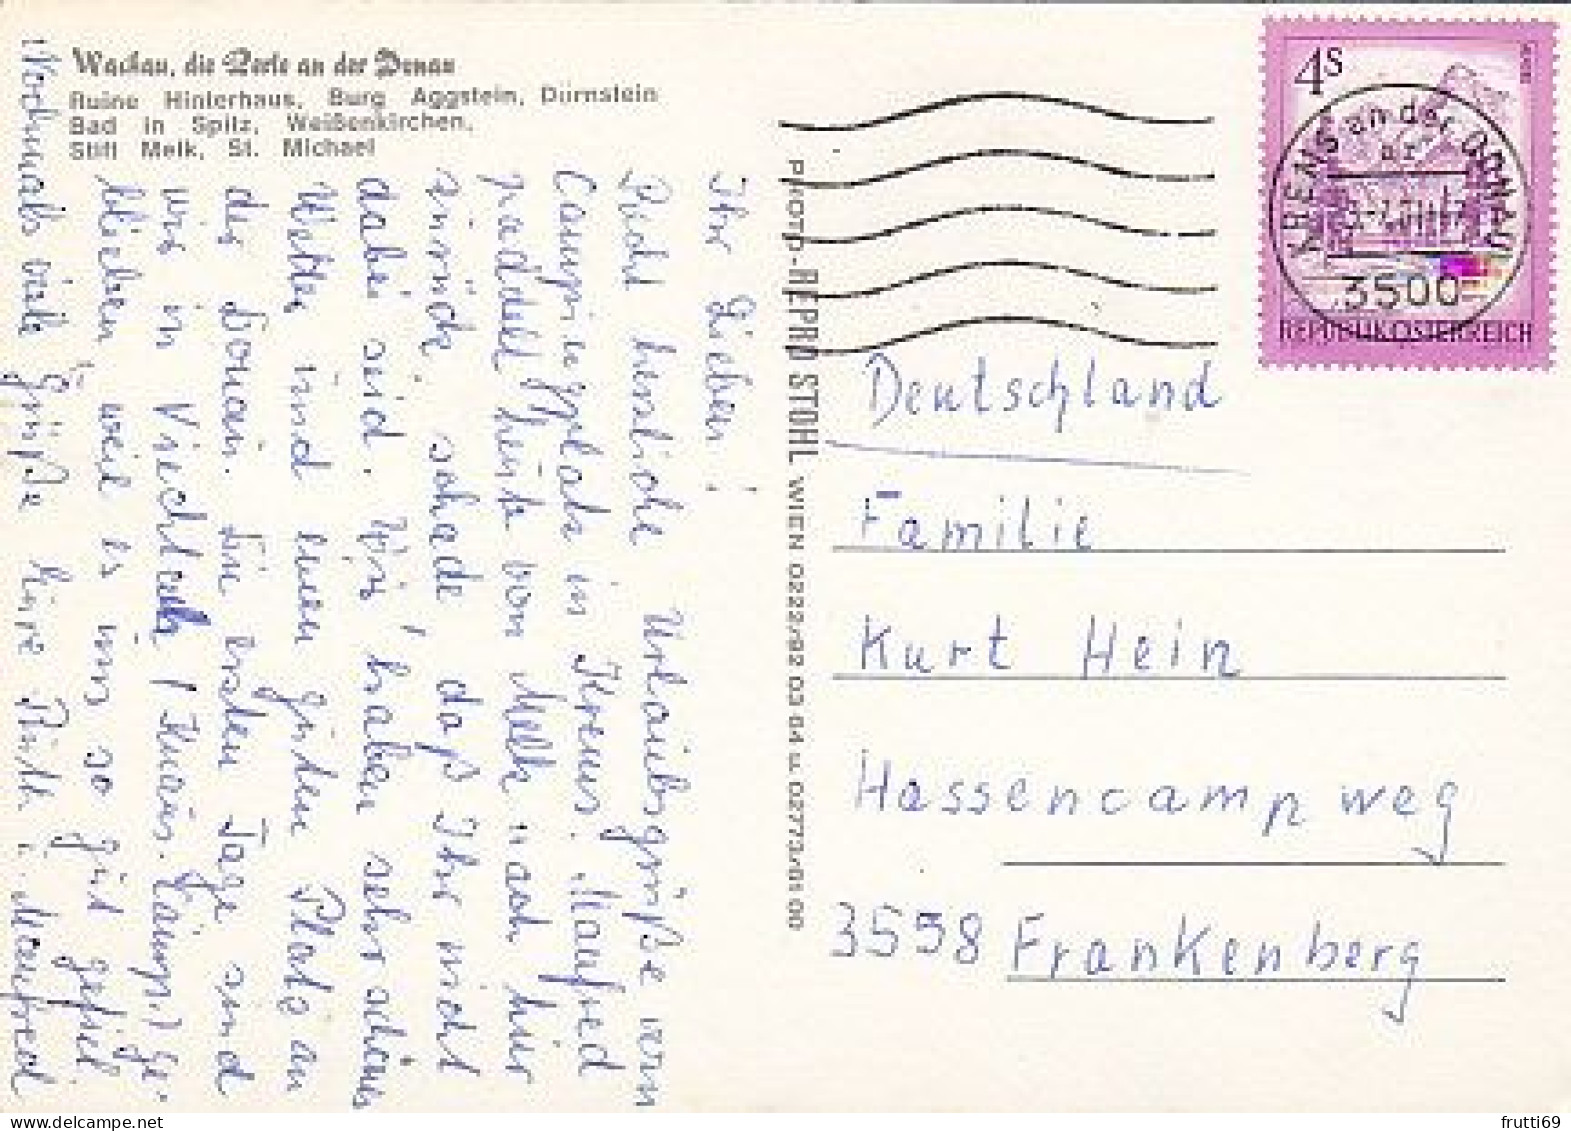 Wachau, die Perle an der Donau
Ruine Hinterhaus, Burg Aggstein, Dürnstein
Bad in Spitz, Weißenkirchen,
Stift Melk, St. Michael
Ihr Lieben!
Recht herzliche Urlaubsgrüße vom
Campingplatz in Krems. Manfred
paddelt heute von Melk nach hier
zurück, schade, daß Ihr nicht
dabei seid. Wir haben sehr schönes
Wetter und einen guten Platz an
der Donau. Die ersten Tage sind
wir in Viechtach (Knaus-Camp.) ge-
blieben weil es uns so gut gefiel.
Nochmals viele Grüße Eure Ruth u. Manfred
PHOTO-REPRO STOHL WIEN 0222/92 03 64 u. 02773/81 00
4S
KREMS an der DONAU
3500
REPUBLIK ÖSTERREICH
Deutschland
Familie
Kurt Hein
Hassencampweg
3558 Frankenberg
frutti69